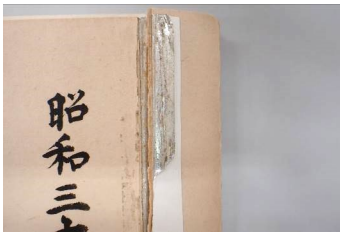 昭和三